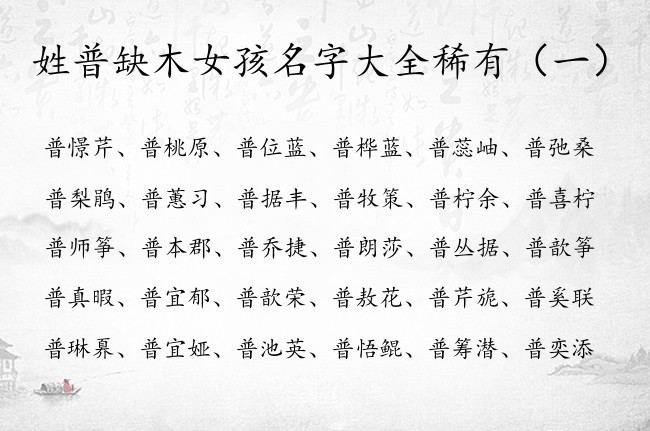 姓普缺木女孩名字大全稀有（一）
普憬芹、普桃原、普位蓝、普桦蓝、普蕊岫、普弛桑
普梨鹃、普蕙习、普据丰、普牧策、普柠余、普喜柠
普师筝、普本郡、普乔捷、普朗莎、普丛据、普歆筝
普真暇、普宜郁、普歆荣、普敖花、普芹旎、普奚联
普琳奡、普宜娅、普池英、普悟鲲、普筹潜、普奕添